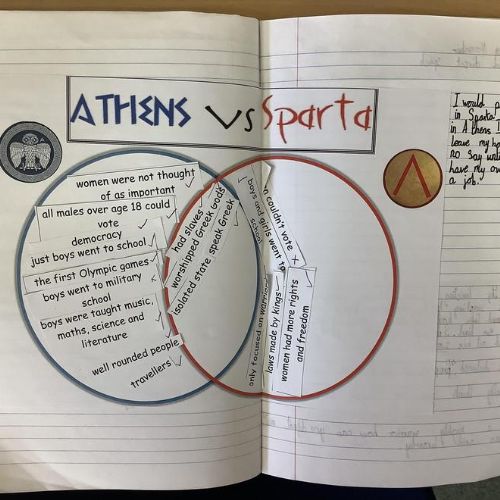 ATHENS vs Sparta
women were not thought
of as important
all males over age 18 could
vote
democracy
just boys went to school
the first Olympic games
boys went to military
school
boys were taught music,
maths, science and
literature
well rounded people
travellers
had slaves
worshipped Greek Gods
isolated state speak Greek
couldn't vote
boys and girls went to
school
only focused on
laws made by kings
women had more rights
and freedom
I would
in Sparta
in Athens
leave my
no say
have my
a job.